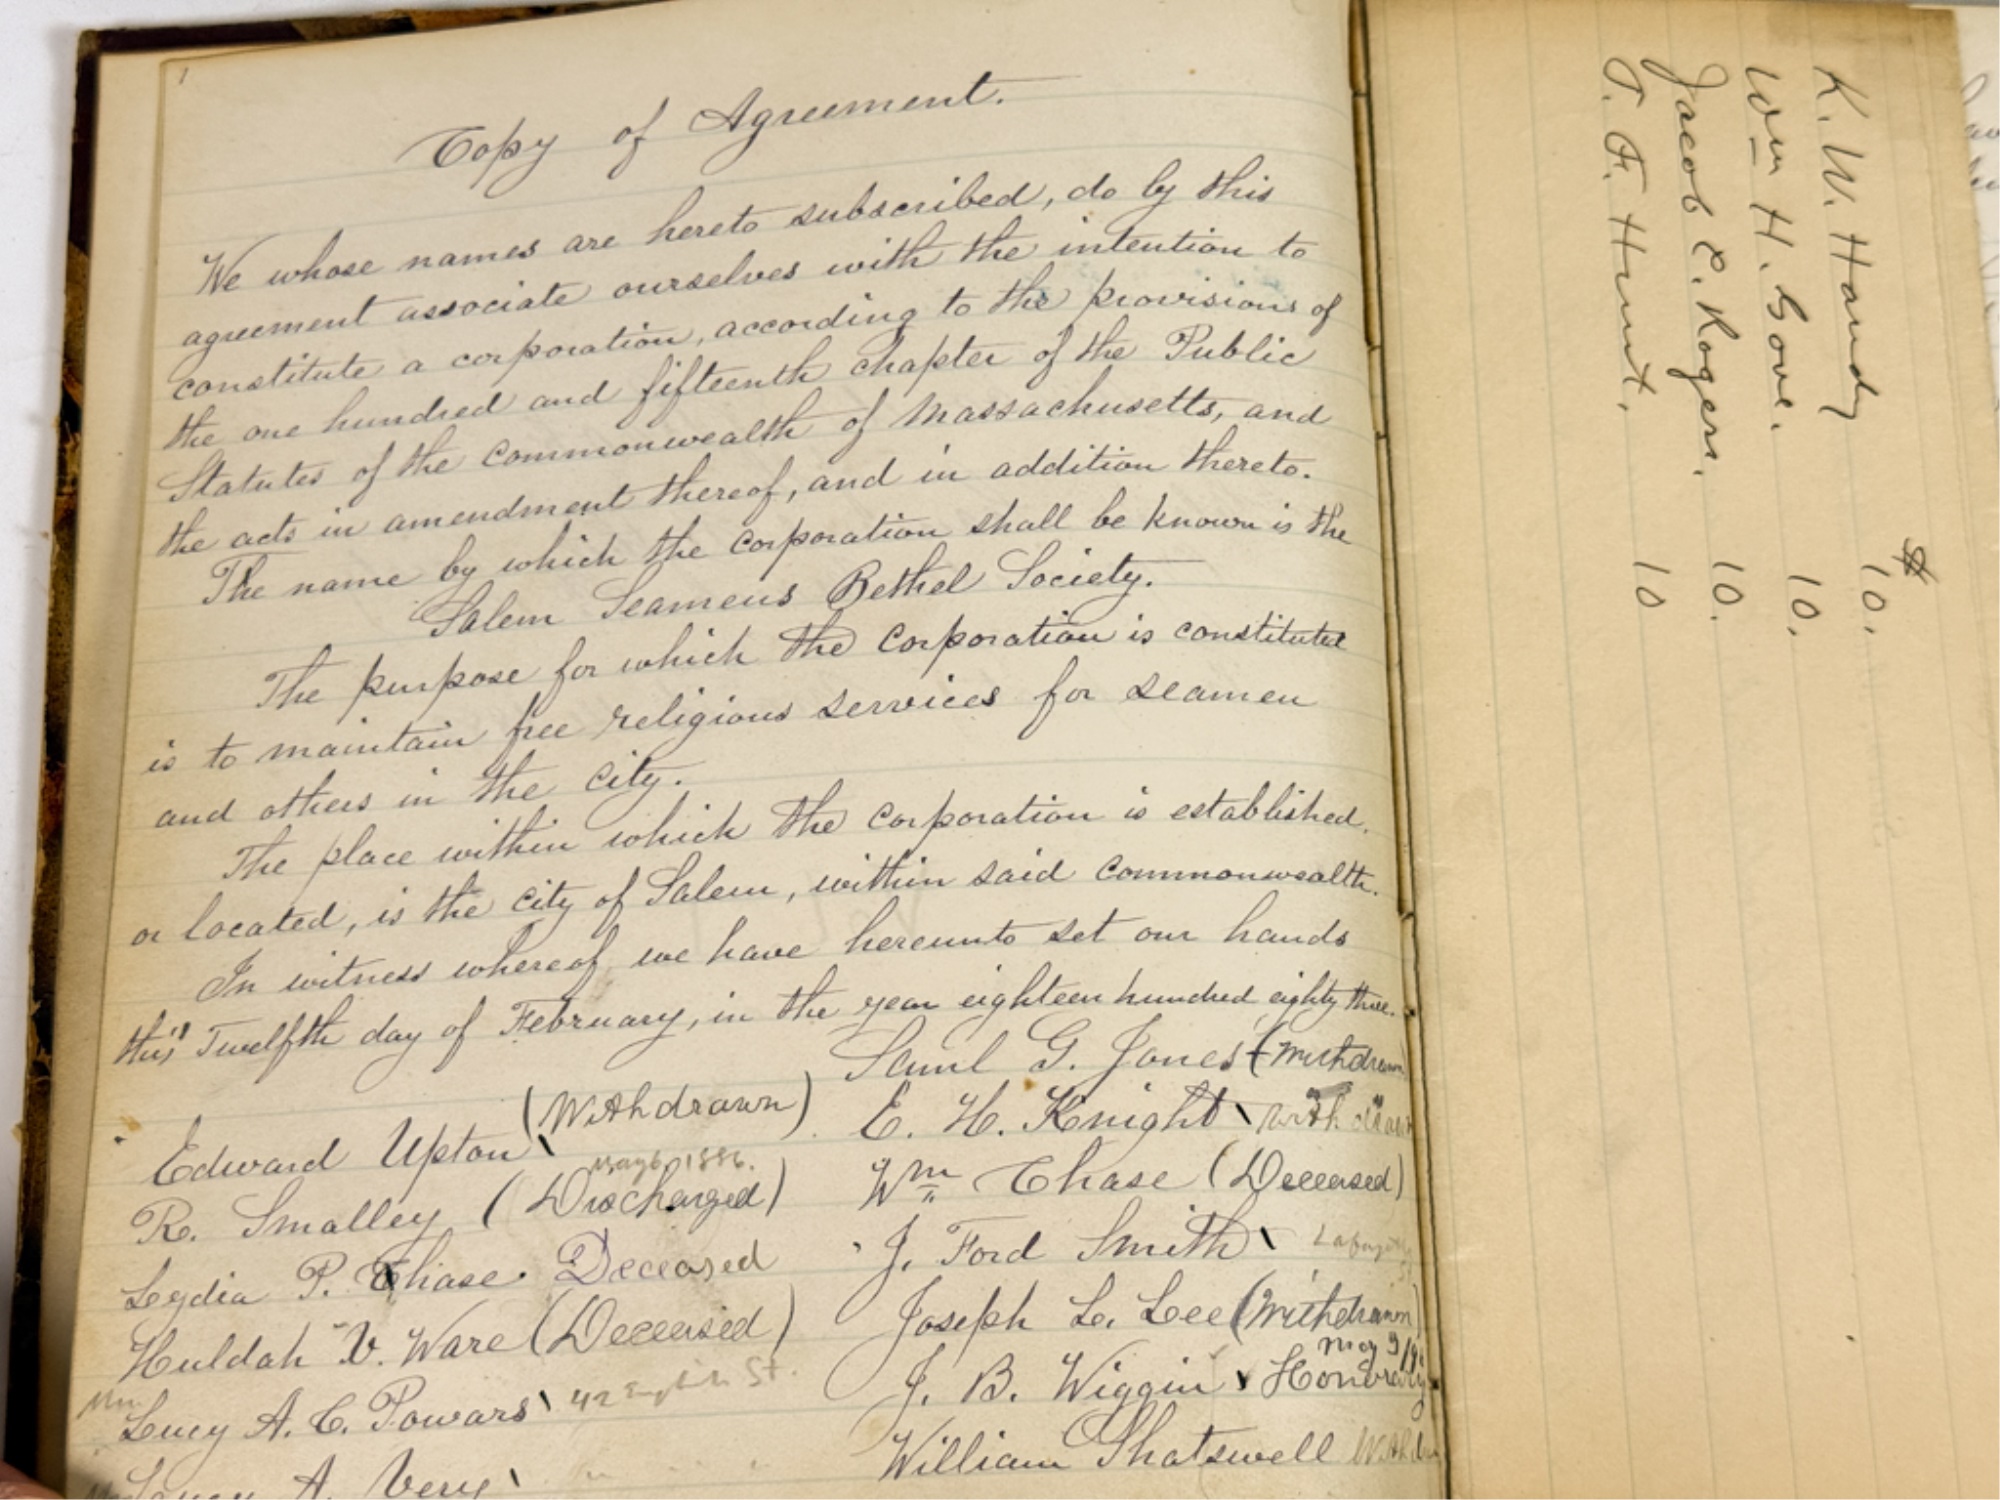 1
Copy of Agreement.
We whose names are hereto subscribed, do by this
agreement associate ourselves with the intention to
constitute a corporation, according to the provisions of
the one hundred and fifteenth chapter of the Public
Statutes of the Commonwealth of Massachusetts, and
the acts in amendment thereof, and in addition thereto.
The name by which the Corporation shall be known is the
Salem Seamens Bethel Society.
The purpose for which the Corporation is constituted
is to maintain free religious services for seamen
and others in the City.
The place within which the Corporation is established,
or located, is the City of Salem, within said Commonwealth.
In witness whereof, we have hereunto set our hands
this Twelfth day of February, in the year eighteen hundred eighty three.
Saml G. Jones (Withdrawn
(Withdrawn)
Edward Upton
E. H. Knight
May 6 1886.
R. Smalley (Discharged)
Wm Chase (Deceased)
Lydia P. Chase. Deceased
J. Ford Smith
Huldah V. Ware (Deceased)
Joseph L. Lee (Withdrawn)
Mrs. Lucy A. C. Powars 42 English St.
J. B. Wiggin Honorary
A. Very
William Shatswell
$
K. W. Handy 10.
Wm H. Gove. 10.
Jacob C. Rogers. 10.
T. F. Hunt. 10